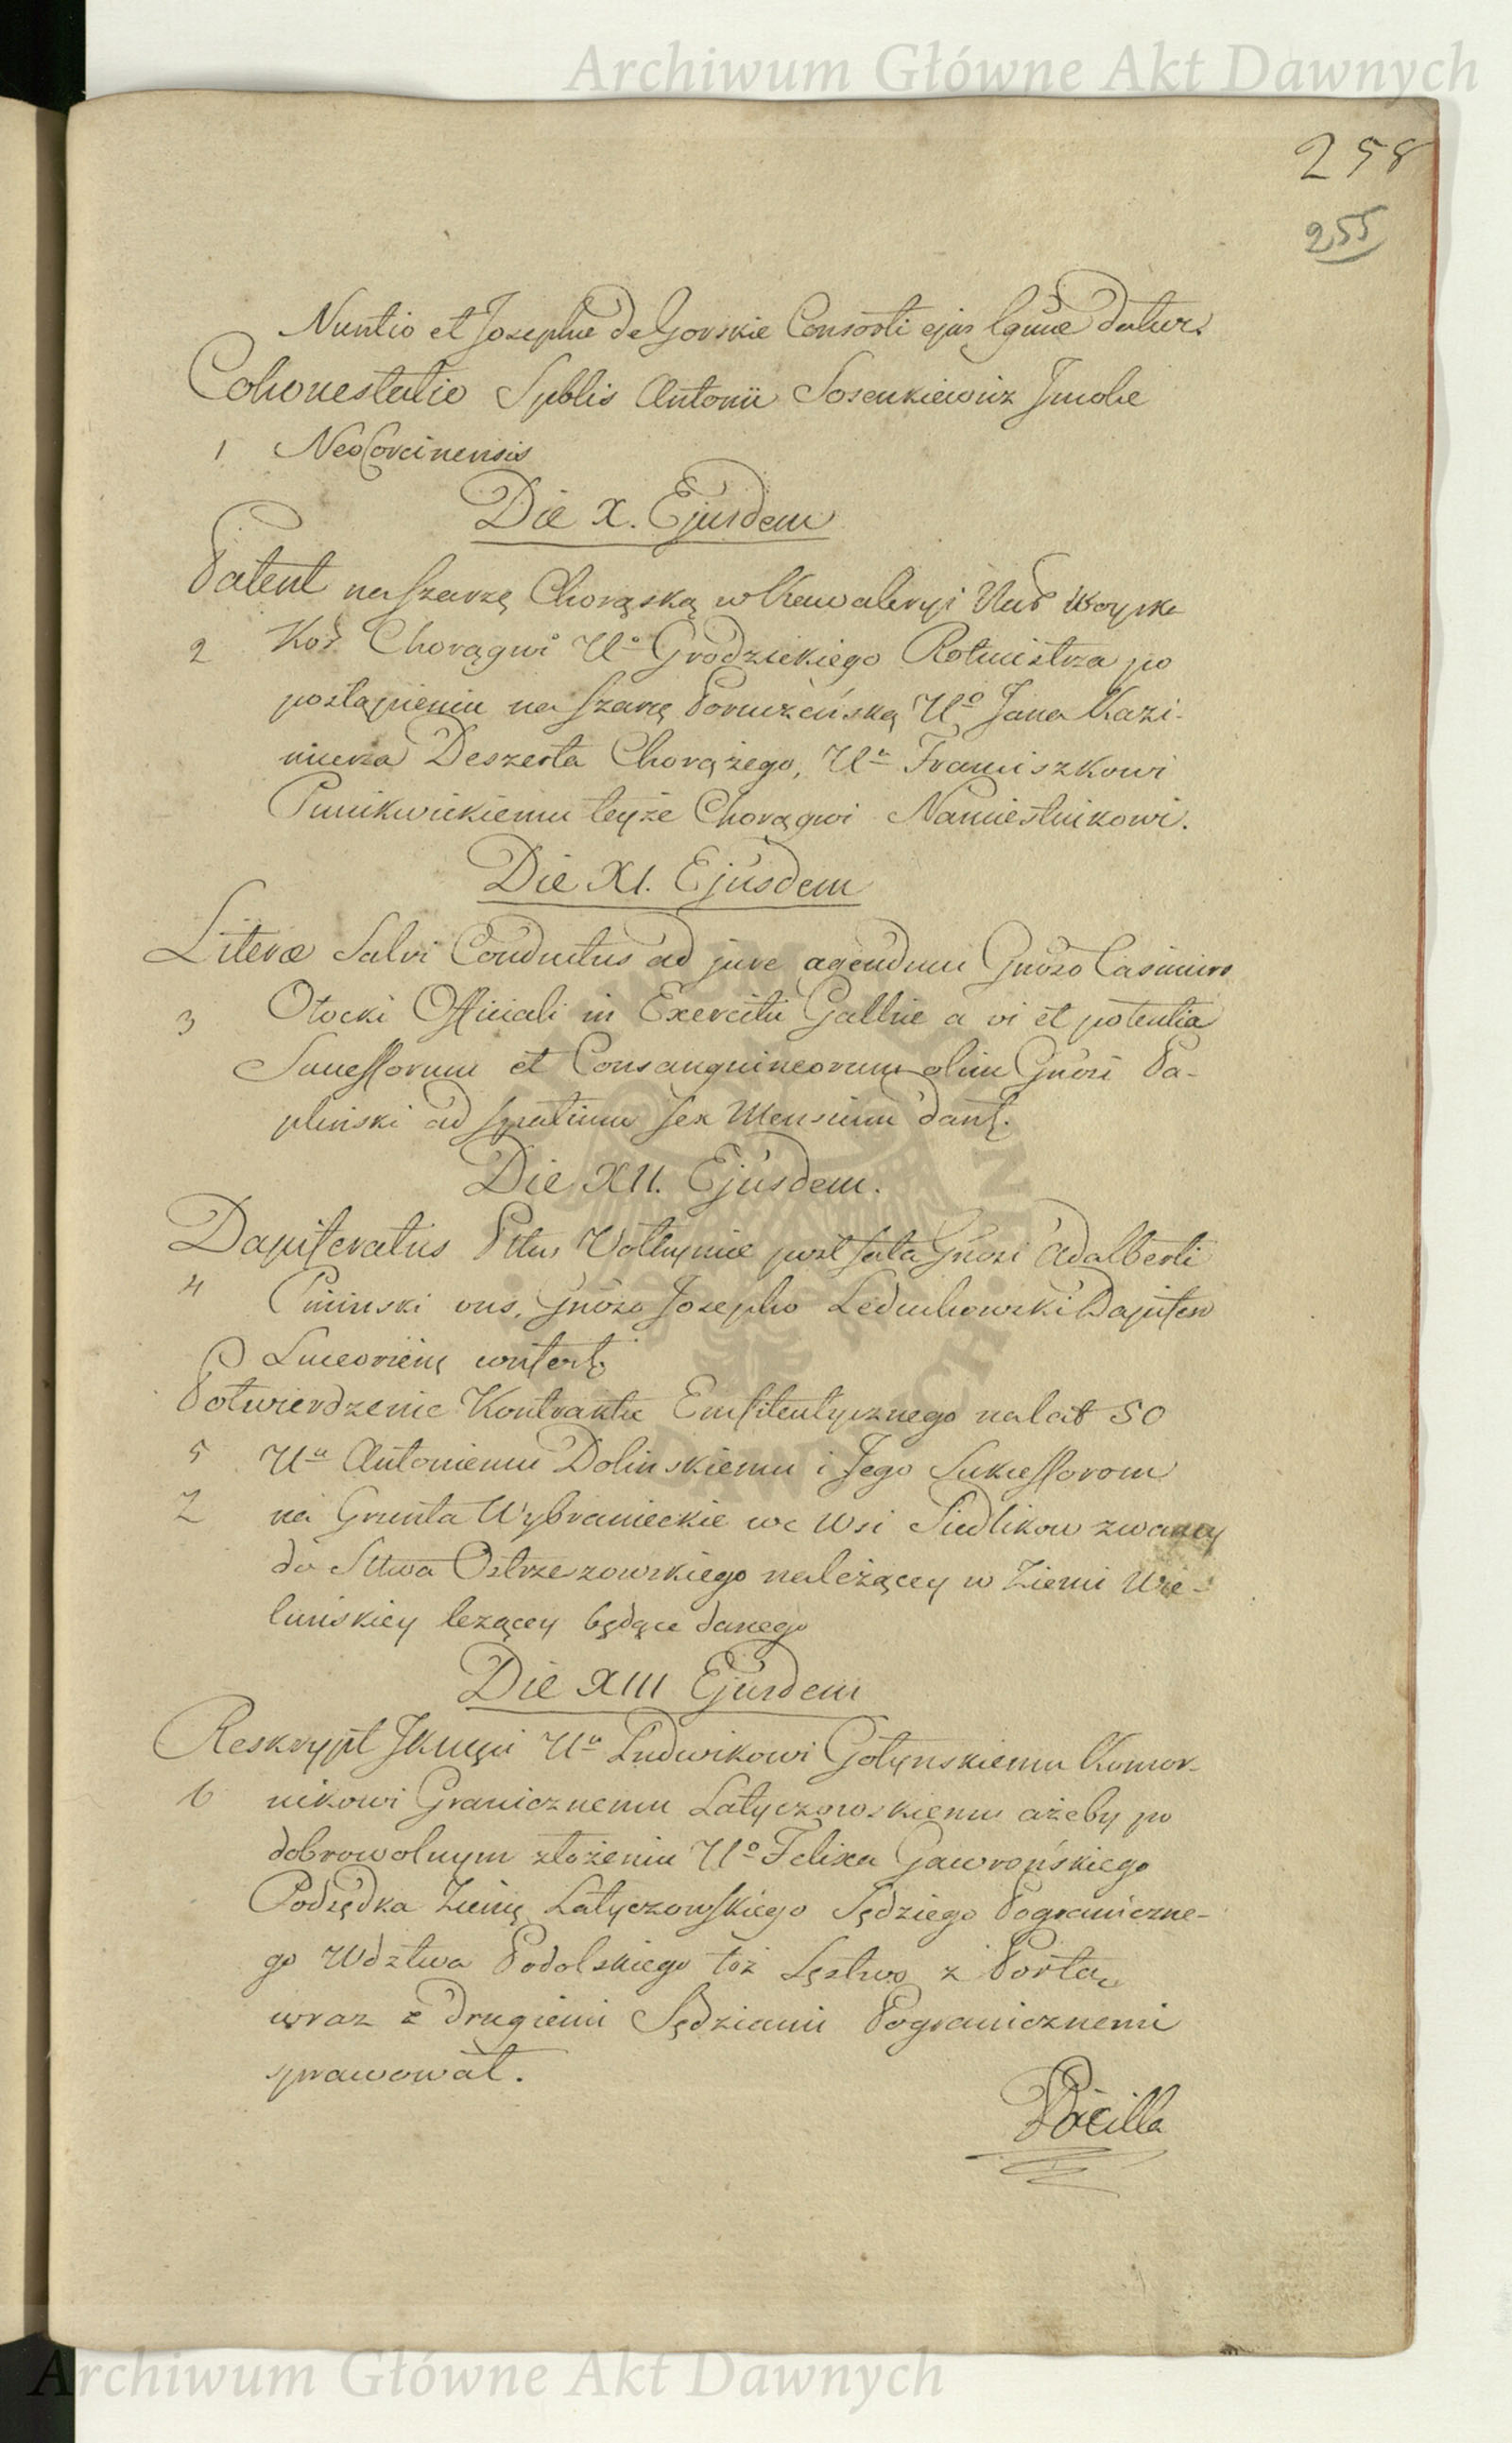 Archiwum Główne Akt Dawnych
258
255
Nuntio et Josephae de Gorskie Consorti ejus datur.
Cohonestatio Spblis Antonii Sosenkiewicz Incolae
1 NeoCorcinensis
Die X. Ejusdem
Patent na szarzę Chorąską w Kawaleryi Nar Woyska
2 Kor. Chorągwi Uo Grodzickiego Rotmistrza po
postąpieniu na szarzę Poruczeńską Uo Jana Kazi-
mierza Deszerta Chorążego, Uu Franciszkowi
teyże Chorągwi Namiestnikowi.
Die XI. Ejusdem
Literae Salvi Conductus ad jure agendum Gnoso Casimiro
3 Otocki Officiali in Exercitu Galliae a vi et potentia
Successorum et Consanguineorum olim Gnosi Pa-
plinski ad spatium sex Mensium dant.
Die XII. Ejusdem.
Dapiferatus Pttus Volhyniae post fata Gnosi Adalberti
4 Pininski Gnoso Josepho Leduchowski Dapifero
Luceorien confert
Potwierdzenie Kontraktu Emfiteutycznego na lat 50
5 Uu Antoniemu Dolinskiemu i Jego Sukcessorom
Z na Grunta Wybranieckie we Wsi Siedlikow zwaney
do Sttwa Ostrzeszowskiego należącey w Ziemi Wie-
luńskiey leżącey będące danego
Die XIII Ejusdem
Reskrypt JKMci Uu Ludwikowi Gołynskiemu Komor-
6 nikowi Granicznemu Latyczowskiemu ażeby po
dobrowolnym złożeniu Uo Felixa Gawrońskiego
Podsędka Ziemi Latyczowskiego Sędziego Pograniczne-
go Wdztwa Podolskiego toż Sęstwo z Portą
wraz z drugiemi Sędziami Pogranicznemi
sprawował.
Archiwum Główne Akt Dawnych